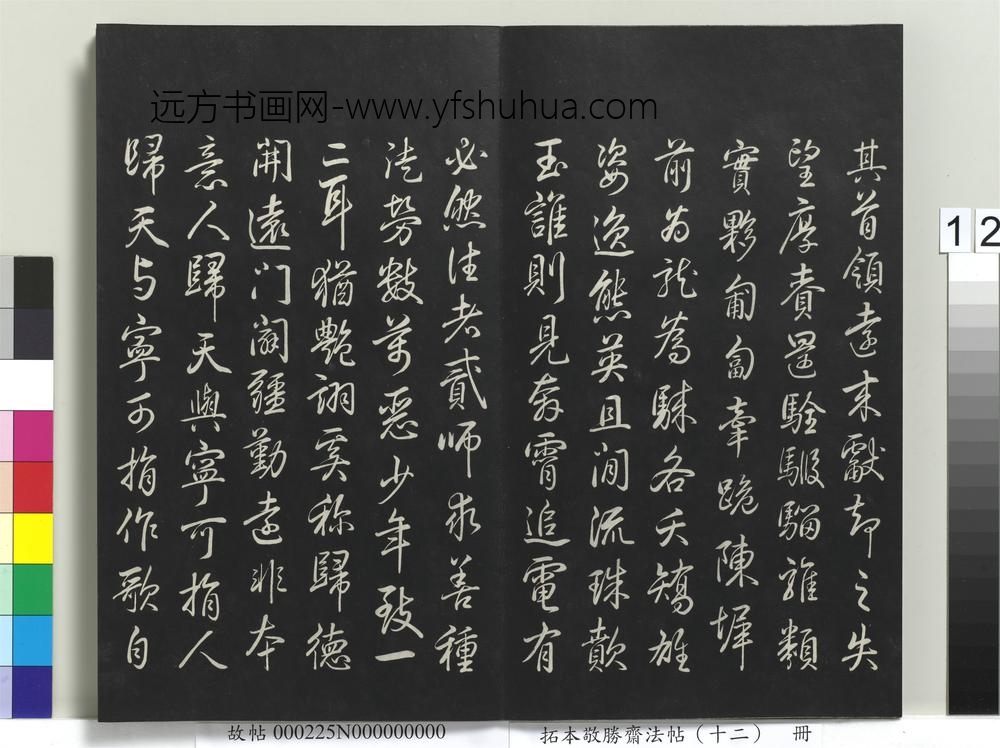 远方书画网-www.yfshuhua.com
其首領遠来獻却之失
望厚賚量駩騢騮雜類
實夥匍匐牽跪陳墀
前為龙為騋各夭矯雄
姿逸態英且閒流珠歕
玉誰則見奔霄追電有
必然往者貳師求善種
徒勞数萬惡少年致一
二耳猶艷詡奚称歸德
開遠门闢疆勤遠非本
意人歸天與寧可捐人
歸天与寧可捐作歌自
12
故帖 000225N000000000
拓本敬勝齋法帖（十二） 冊